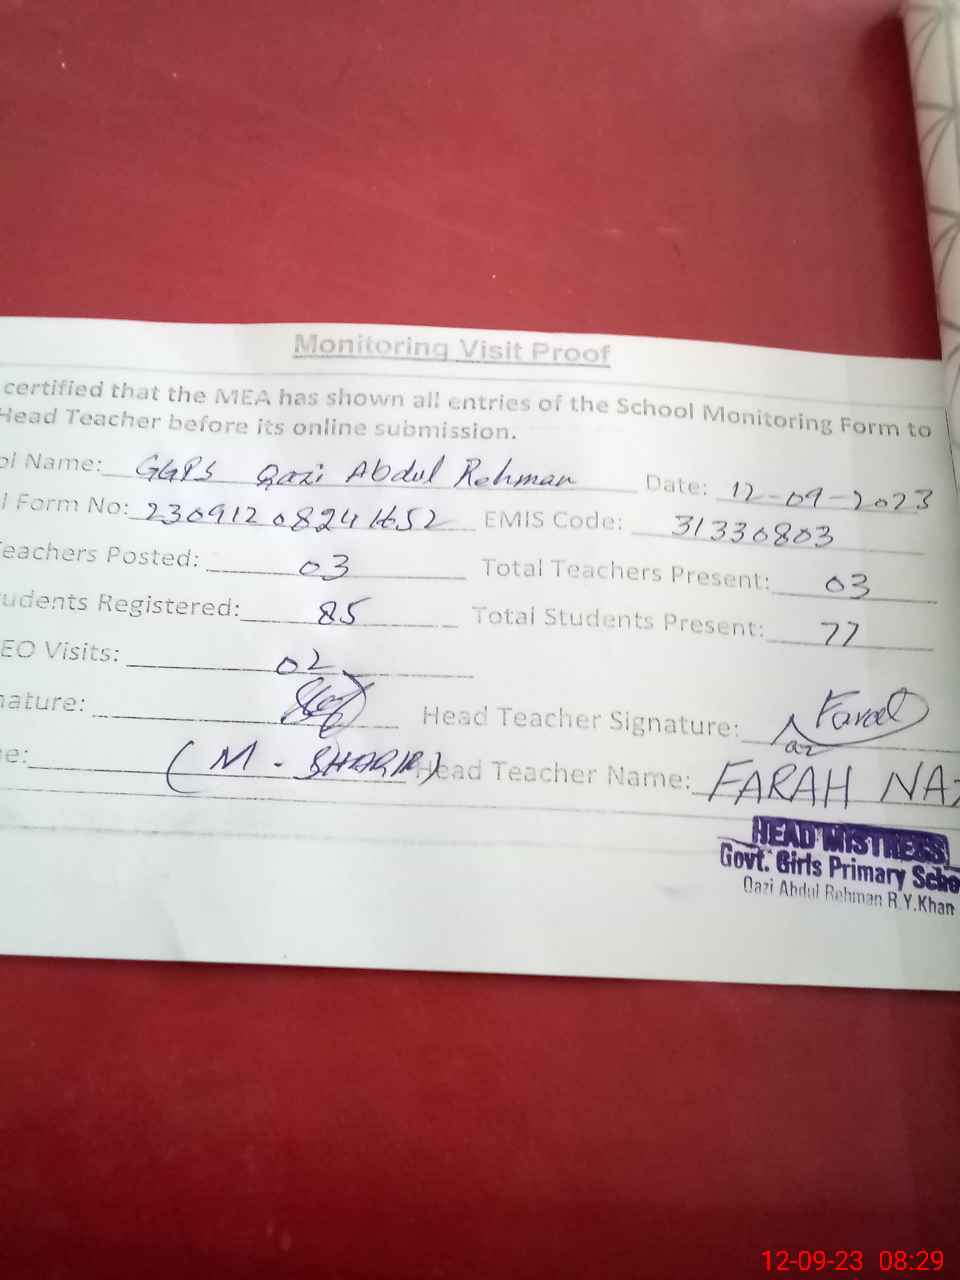 Monitoring Visit Proof
certified that the MEA has shown all entries of the School Monitoring Form to
Head Teacher before its online submission.
ol Name: GGPS Qazi Abdul Rehman Date: 12-09-2023
l Form No: 2309120824 1652 EMIS Code: 31330803
Teachers Posted: 03 Total Teachers Present: 03
tudents Registered: 85 Total Students Present: 77
EO Visits: 02
nature: Head Teacher Signature: Farah Naz
e: (M. SHARIF) Head Teacher Name: FARAH NAZ
HEAD MISTRESS
Govt. Girls Primary Scho
Qazi Abdul Rehman R.Y.Khan
12-09-23 08:29